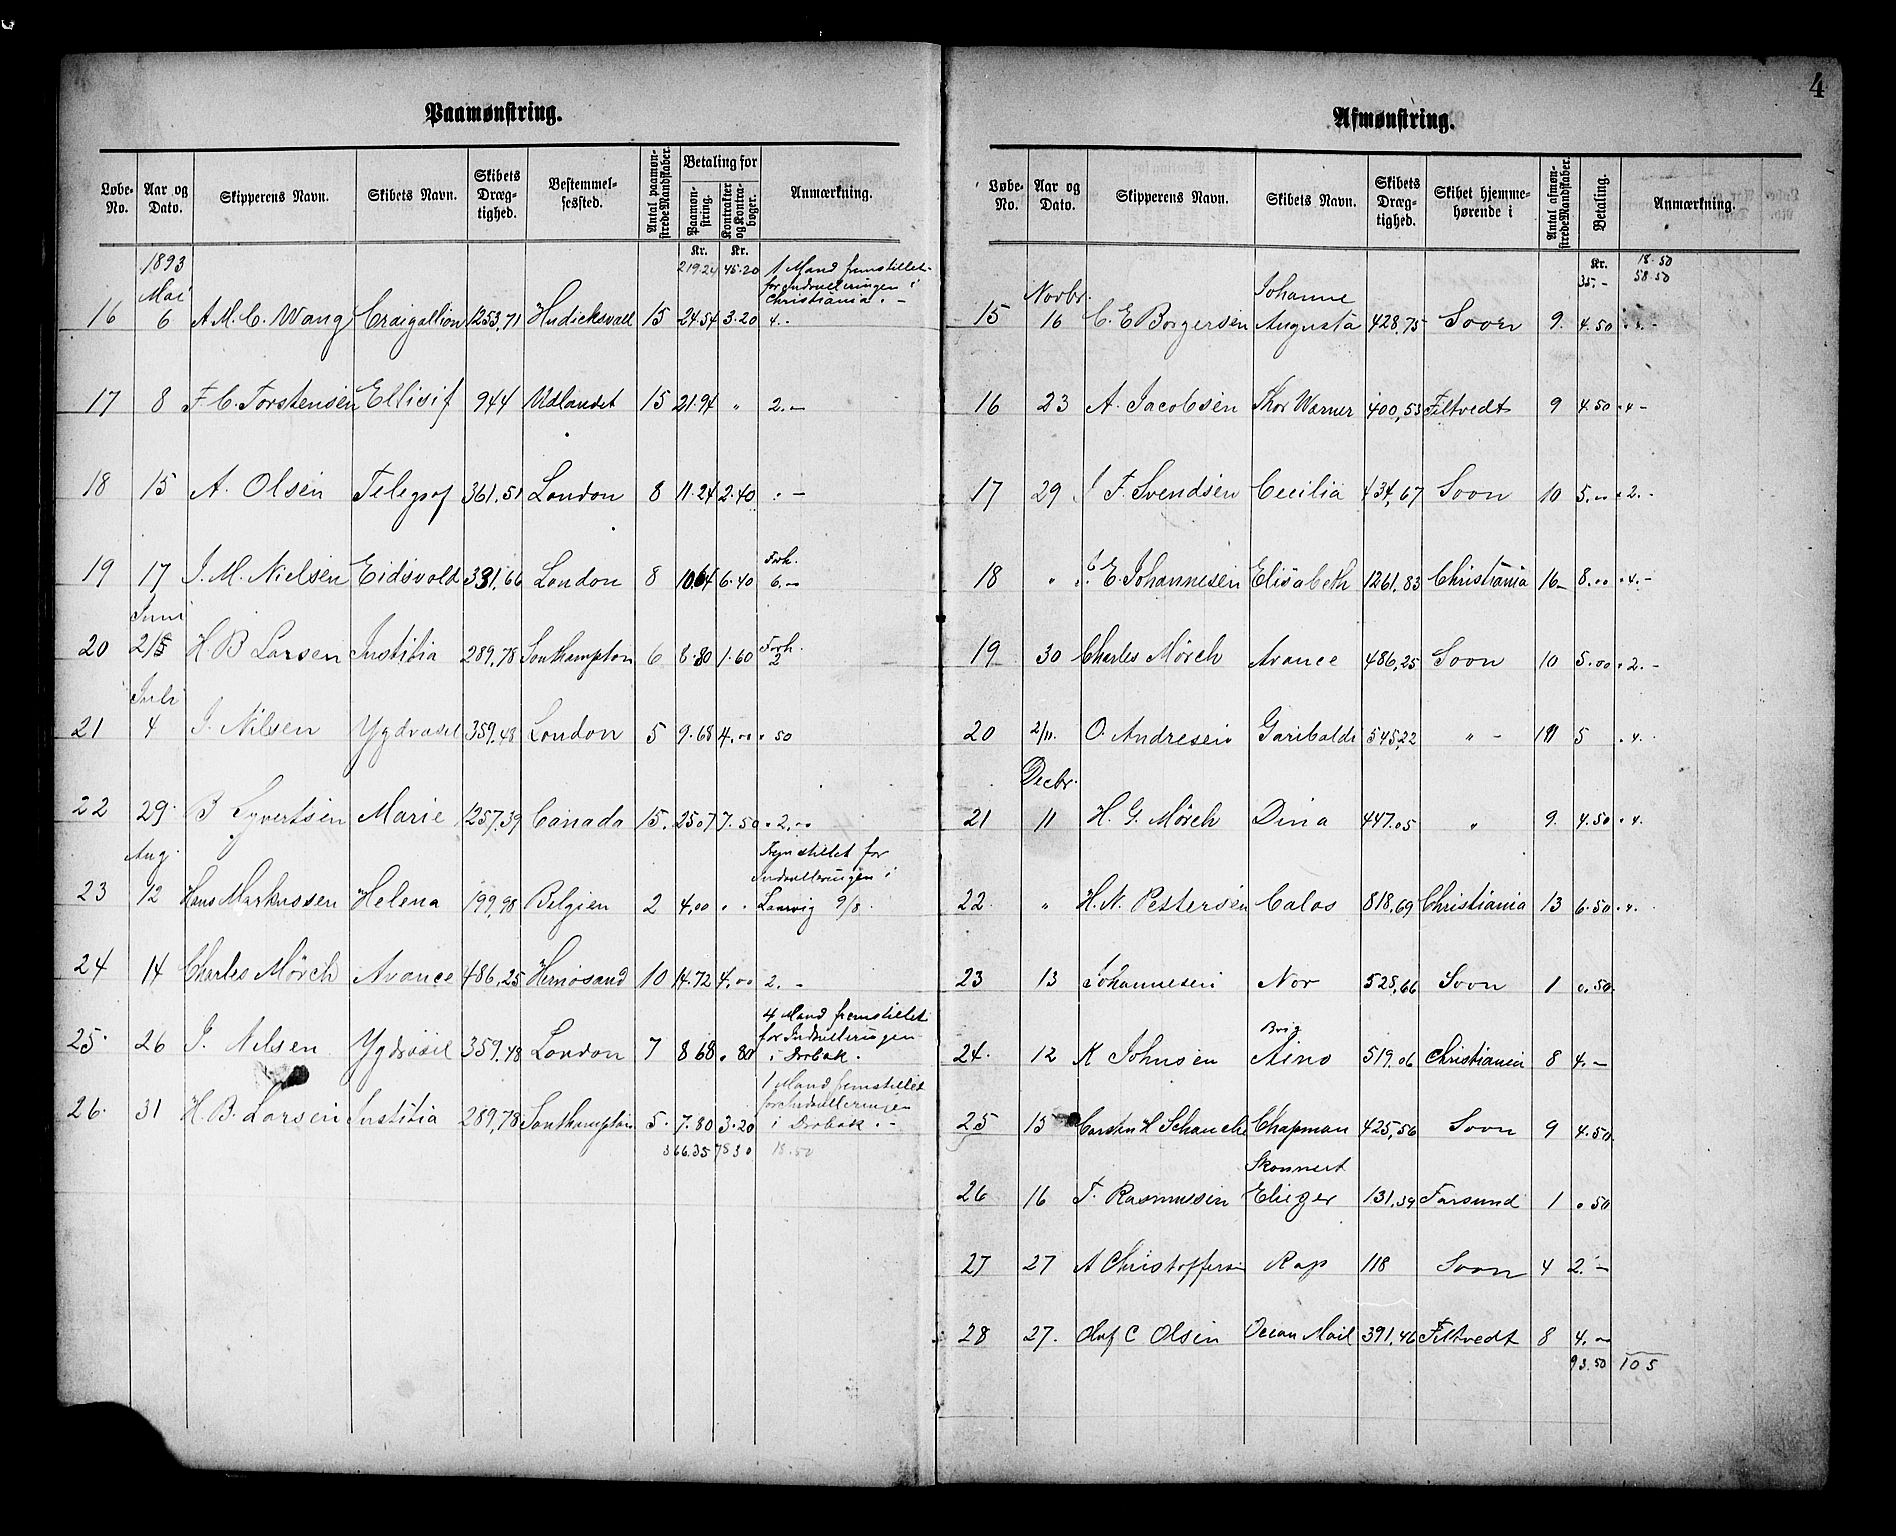 4
Paamønstring.
Løbe-No. | Aar og Dato. | Skipperens Navn. | Skibets Navn. | Skibets Dræg-tighed. | Bestemmel-sessted. | Antal paamøn-strede Mandskaber. | Betaling for Paamøn-string. | Kontrakter og Kontra-bøger. | Anmærkning.
1893 | Kr. 219.24 | Kr. 45.20 | 1 Mand fremstillet
for Indrulleringen i
Christiania. -
16 | Mai 6 | A. M. C. Wang | Craigallion | 1253,71 | Hudicksvall | 15 | 24.54 | 3.20 | 4.-
17 | 8 | F. C. Torstensen | Ellisif | 944 | Udlandet | 15 | 21.94 | " | 2.-
18 | 15 | A. Olsen | Telegraf | 361,51 | London | 8 | 11.24 | 2.40 | . -
19 | 17 | J. M. Nielsen | Eidsvold | 331,66 | London | 8 | 10.64 | 6.40 | Forh. 6.-
20 | Juni 215 | H B Larsen | Justitia | 289,78 | Southampton | 6 | 8.80 | 1.60 | Forh. 2
21 | Juli 4 | J. Nilsen | Ygdrasil | 359,48 | London | 5 | 9.68 | 4.00 | . 50
22 | 29 | B Syvertsen | Marie | 1257,39 | Canada | 15. | 25.07 | 7.50 | . 2.-
23 | Aug. 12 | Hans Markussen | Helena | 199,98 | Belgien | 2 | 4,00 | . . | Fremstillet for
Indrulleringen i
Laurvig 9/8.
24 | 14 | Charles Mörch | Avance | 486,25 | Hernösand | 10 | 14.72 | 4.00 | 2. -
25 | 26 | J. Nilsen | Ygdrasil | 359,48 | London | 7 | 8 68 | . 80 | 4 Mand fremstillet
for Indrulleringen
i Drøbak.
26. | 31 | H. B. Larsen | Justitia | 289,78 | Southampton | 5. | 7.80 | 3.20 | 1 Mand fremstillet
for Indrulleringen
i Drobak. -
366.35 | 75 30 | 18.50
Afmønstring.
Løbe-No. | Aar og Dato. | Skipperens Navn. | Skibets Navn. | Skibets Dræg-tighed. | Skibet hjemme-hørende i | Antal afmøn-strede Mandskaber. | Betaling. | Anmærkning.
Kr. 35.- | 18.50
58.50
15 | Novbr. 16 | C. E Borgersen | Johanne Augusta | 428,75 | Soon | 9. | 4.50 | . 4.-
16 | 23 | A. Jacobsen | Thor Warner | 400,53 | Filtvedt | 9 | 4.50 | . 4 -
17 | 29 | J F. Svendsen | Cecilia | 434,67 | Soon | 10 | 5.00 | . 2. -
18 | " | C. E. Johannesen | Elisabeth | 1261,83 | Christiania | 16- | 8.00 | . 4. -
19 | 30 | Charles Mörch | Avance | 486,25 | Soon | 10 | 5.00 | . 2. -
20 | 2/11. | O. Andresen | Garibaldi | 545,22 | " - | 5 | . 4.
21 | Decbr. 11 | H. G. Mörch | Dina | 447.05 | " | 9. | 4.50 | . 4.
22. | " | H. N. Pettersen | Calos | 818,69 | Christiania | 13 | 6.50 | . 4.
23 | 13 | Johannesen | Nor | 525,66 | Soon | 1 | 0.50
24. | 12 | K Johnsen | Brig Aino | 519,06 | Christiania | 8 | 4.-
25 | 15 | Carsten H Schanche | Chapman | 425,56 | Soon | 9 | 4.50
26 | 16 | T. Rasmussen | Skonnert Elieger | 131,39 | Farsund | 1 | 0 50
27 | 27 | A Christoffersen | Rap | 118 | Soon | 4 | 2.-
28 | 27. | Oluf C Olsen | Ocean Mail | 391,46 | Filtvedt | 8 | 4.-
93.50 | 105